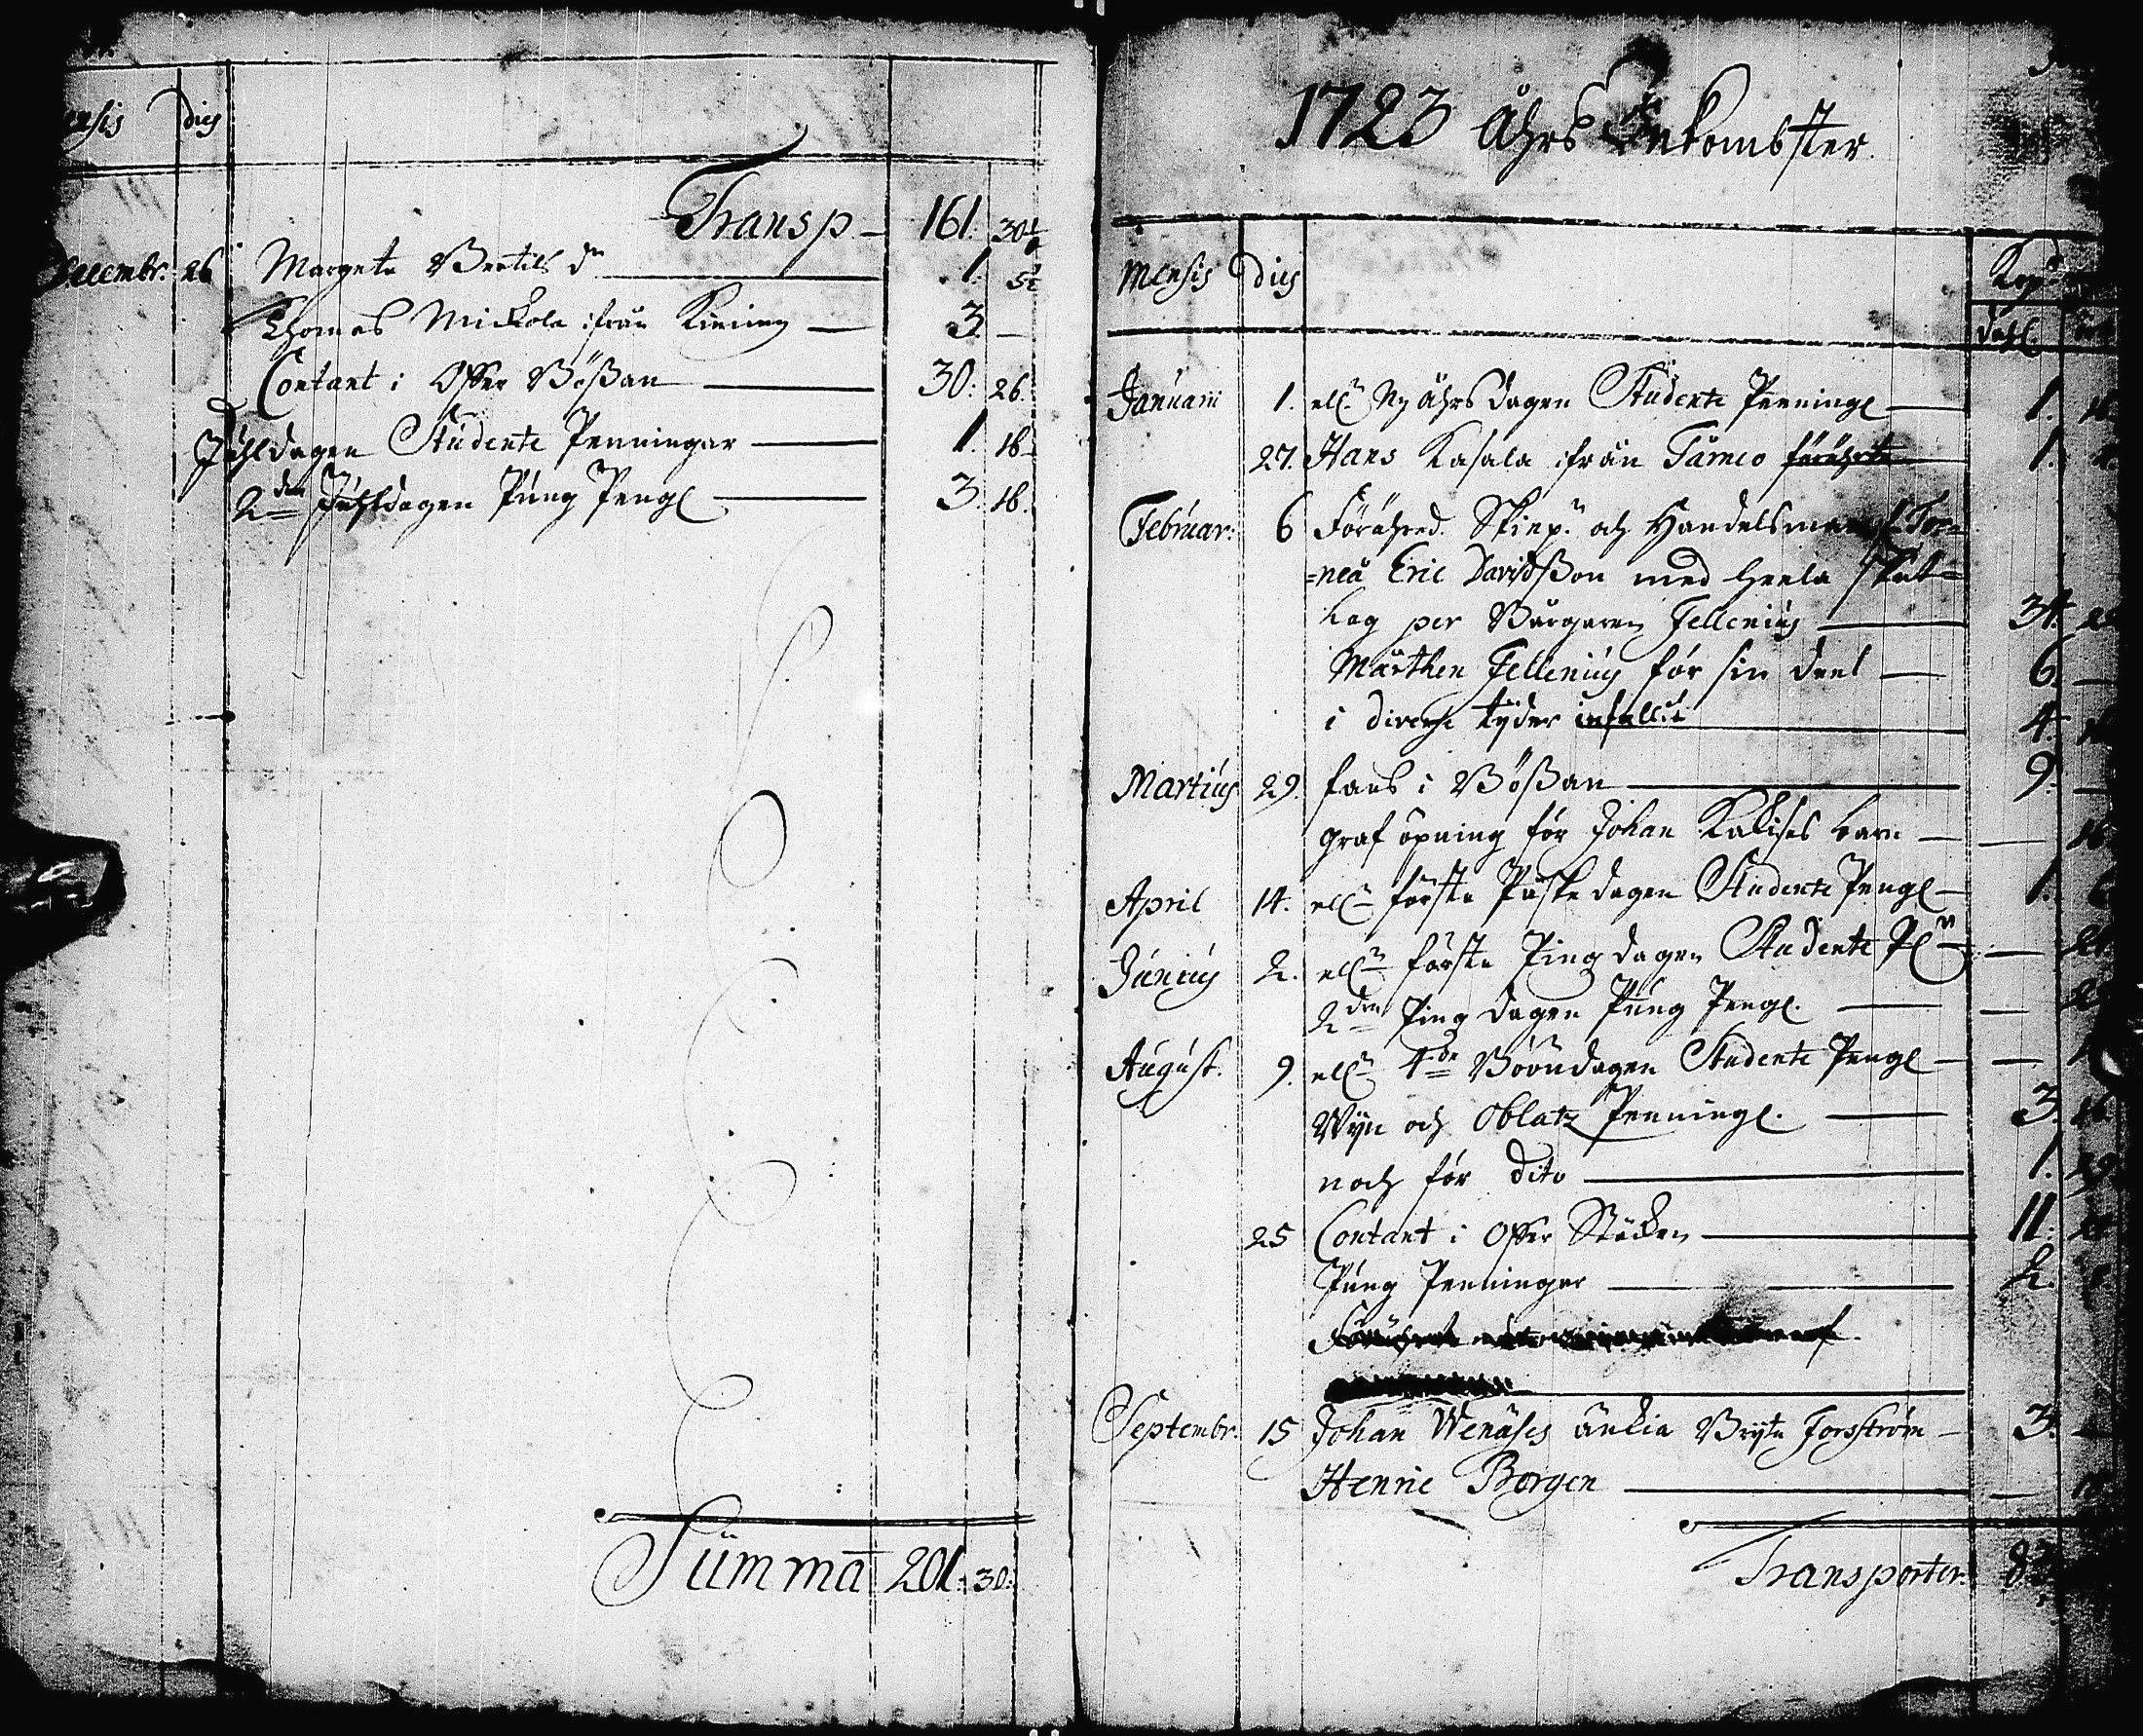 dies
Transp. 161. 30½
Decembr: 26 Margeta Bertils dr 1. 5½
Thomas Mickola ifrån Kiviniemj 3. —
Contant i Offer Bößan 30: 26.
Juhldagen Studente Penningar 1. 16.
2den Juhldagen Pung Pengl 3. 16.
Summa 201: 30:
1723 Åhrs Inkombster.
Mensis dies Kop
dahl.
Januarii 1. ell.r Ny åhrs dagen Studente Penningl 1.
27. Hans Kasala ifrån Tårneo förährte 1.
Februar: 6 Förähred. Skiep.r och Handelsman i Tor=
=neå Eric Davidßon med heela skut=
lag per Borgaren Fellenius 34.
Mårthen Fellenius för sin deel 6. —
i diverse tijder infallit 4.
Martius 29. fans i Bößan 9. —
graf öpning för Johan Kakises barn —
April 14. ell.r förste Påske dagen Studente Pengl 1.
Junius 2. ell.r förste Pingdagen Studente Pl.r —
2den Ping dagen Pung Pengl. —
August. 9. ell.r 4de Böönedagen Studente Pengl —
Wijn och Oblatz Penningl. 3.
noch för dito 1.
25 Contant i Offer Stäcken 11.
Pung Penningar 2.
Septembr: 15 Johan Wenäses änkia Brijta Forsström 3.
Henric Borgen —
Transporter: 83